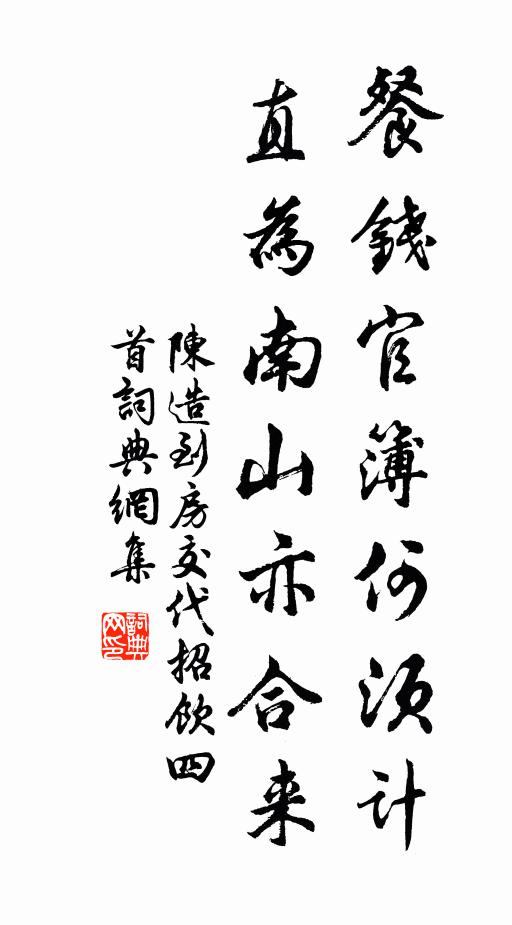 餐錢官簿何須計
直為南山亦合来
陳造到房交代招飲四
首詞典網集
詞典网印